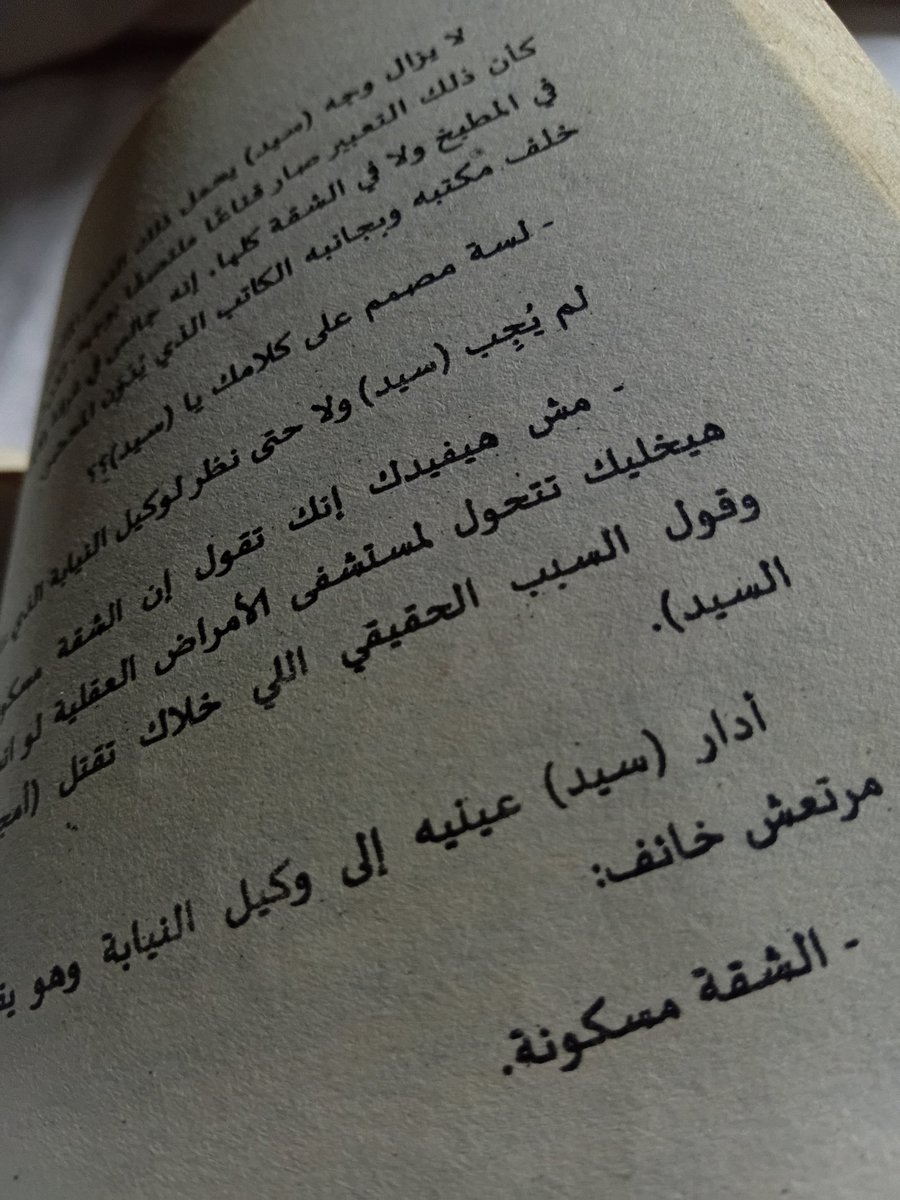 لا يزال وجه (سيد) يحمل ذلك
كأن ذلك التعبير صار قناعًا ملتصقًا بوجهه
في المطبخ ولا في الشقة كلها. إنه جالس في
خلف مكتبه وبجانبه الكاتب الذي يُدوّن المحضر
- لسة مصمم على كلامك يا (سيد)؟؟
لم يُجِب (سيد) ولا حتى نظر لوكيل النيابة الذي
- مش هيفيدك إنك تقول إن الشقة
هيخليك تتحول لمستشفى الأمراض العقلية لو
وقول السبب الحقيقي اللي خلاك تقتل
السيد).
أدار (سيد) عينيه إلى وكيل النيابة وهو
مرتعش خائف:
- الشقة مسكونة.